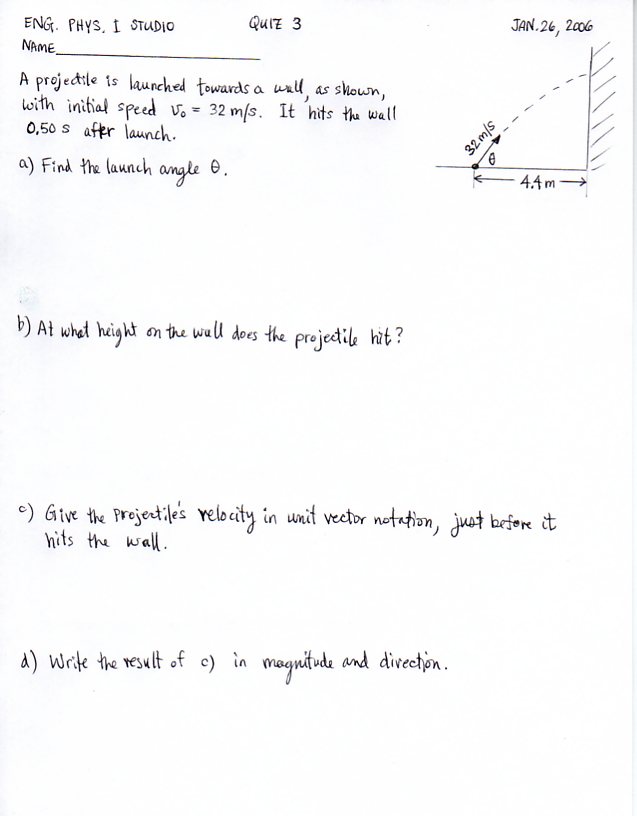 ENG. PHYS. I STUDIO QUIZ 3 JAN. 26, 2006
NAME
A projectile is launched towards a wall, as shown,
with initial speed v₀ = 32 m/s. It hits the wall
0.50 s after launch.
a) Find the launch angle θ.
32 m/s
θ
4.4 m
b) At what height on the wall does the projectile hit?
c) Give the projectile's velocity in unit vector notation, just before it
hits the wall.
d) Write the result of c) in magnitude and direction.